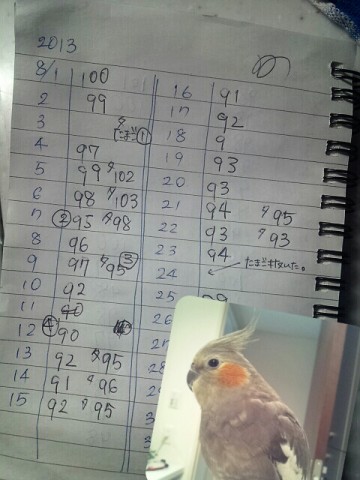 2013
8/1 100
2 99
3 たまご①
4 97
5 99 夕102
6 98 夕103
7 ② 95 夕98
8 96
9 97 夕95 ③
10 92
11
12 ④ 90
13 92 夕95
14 91 夕96
15 92 夕95
16 91
17 92
18 9
19 93
20 93
21 94 夕95
22 93 夕93
23 94
24 ←
25
26